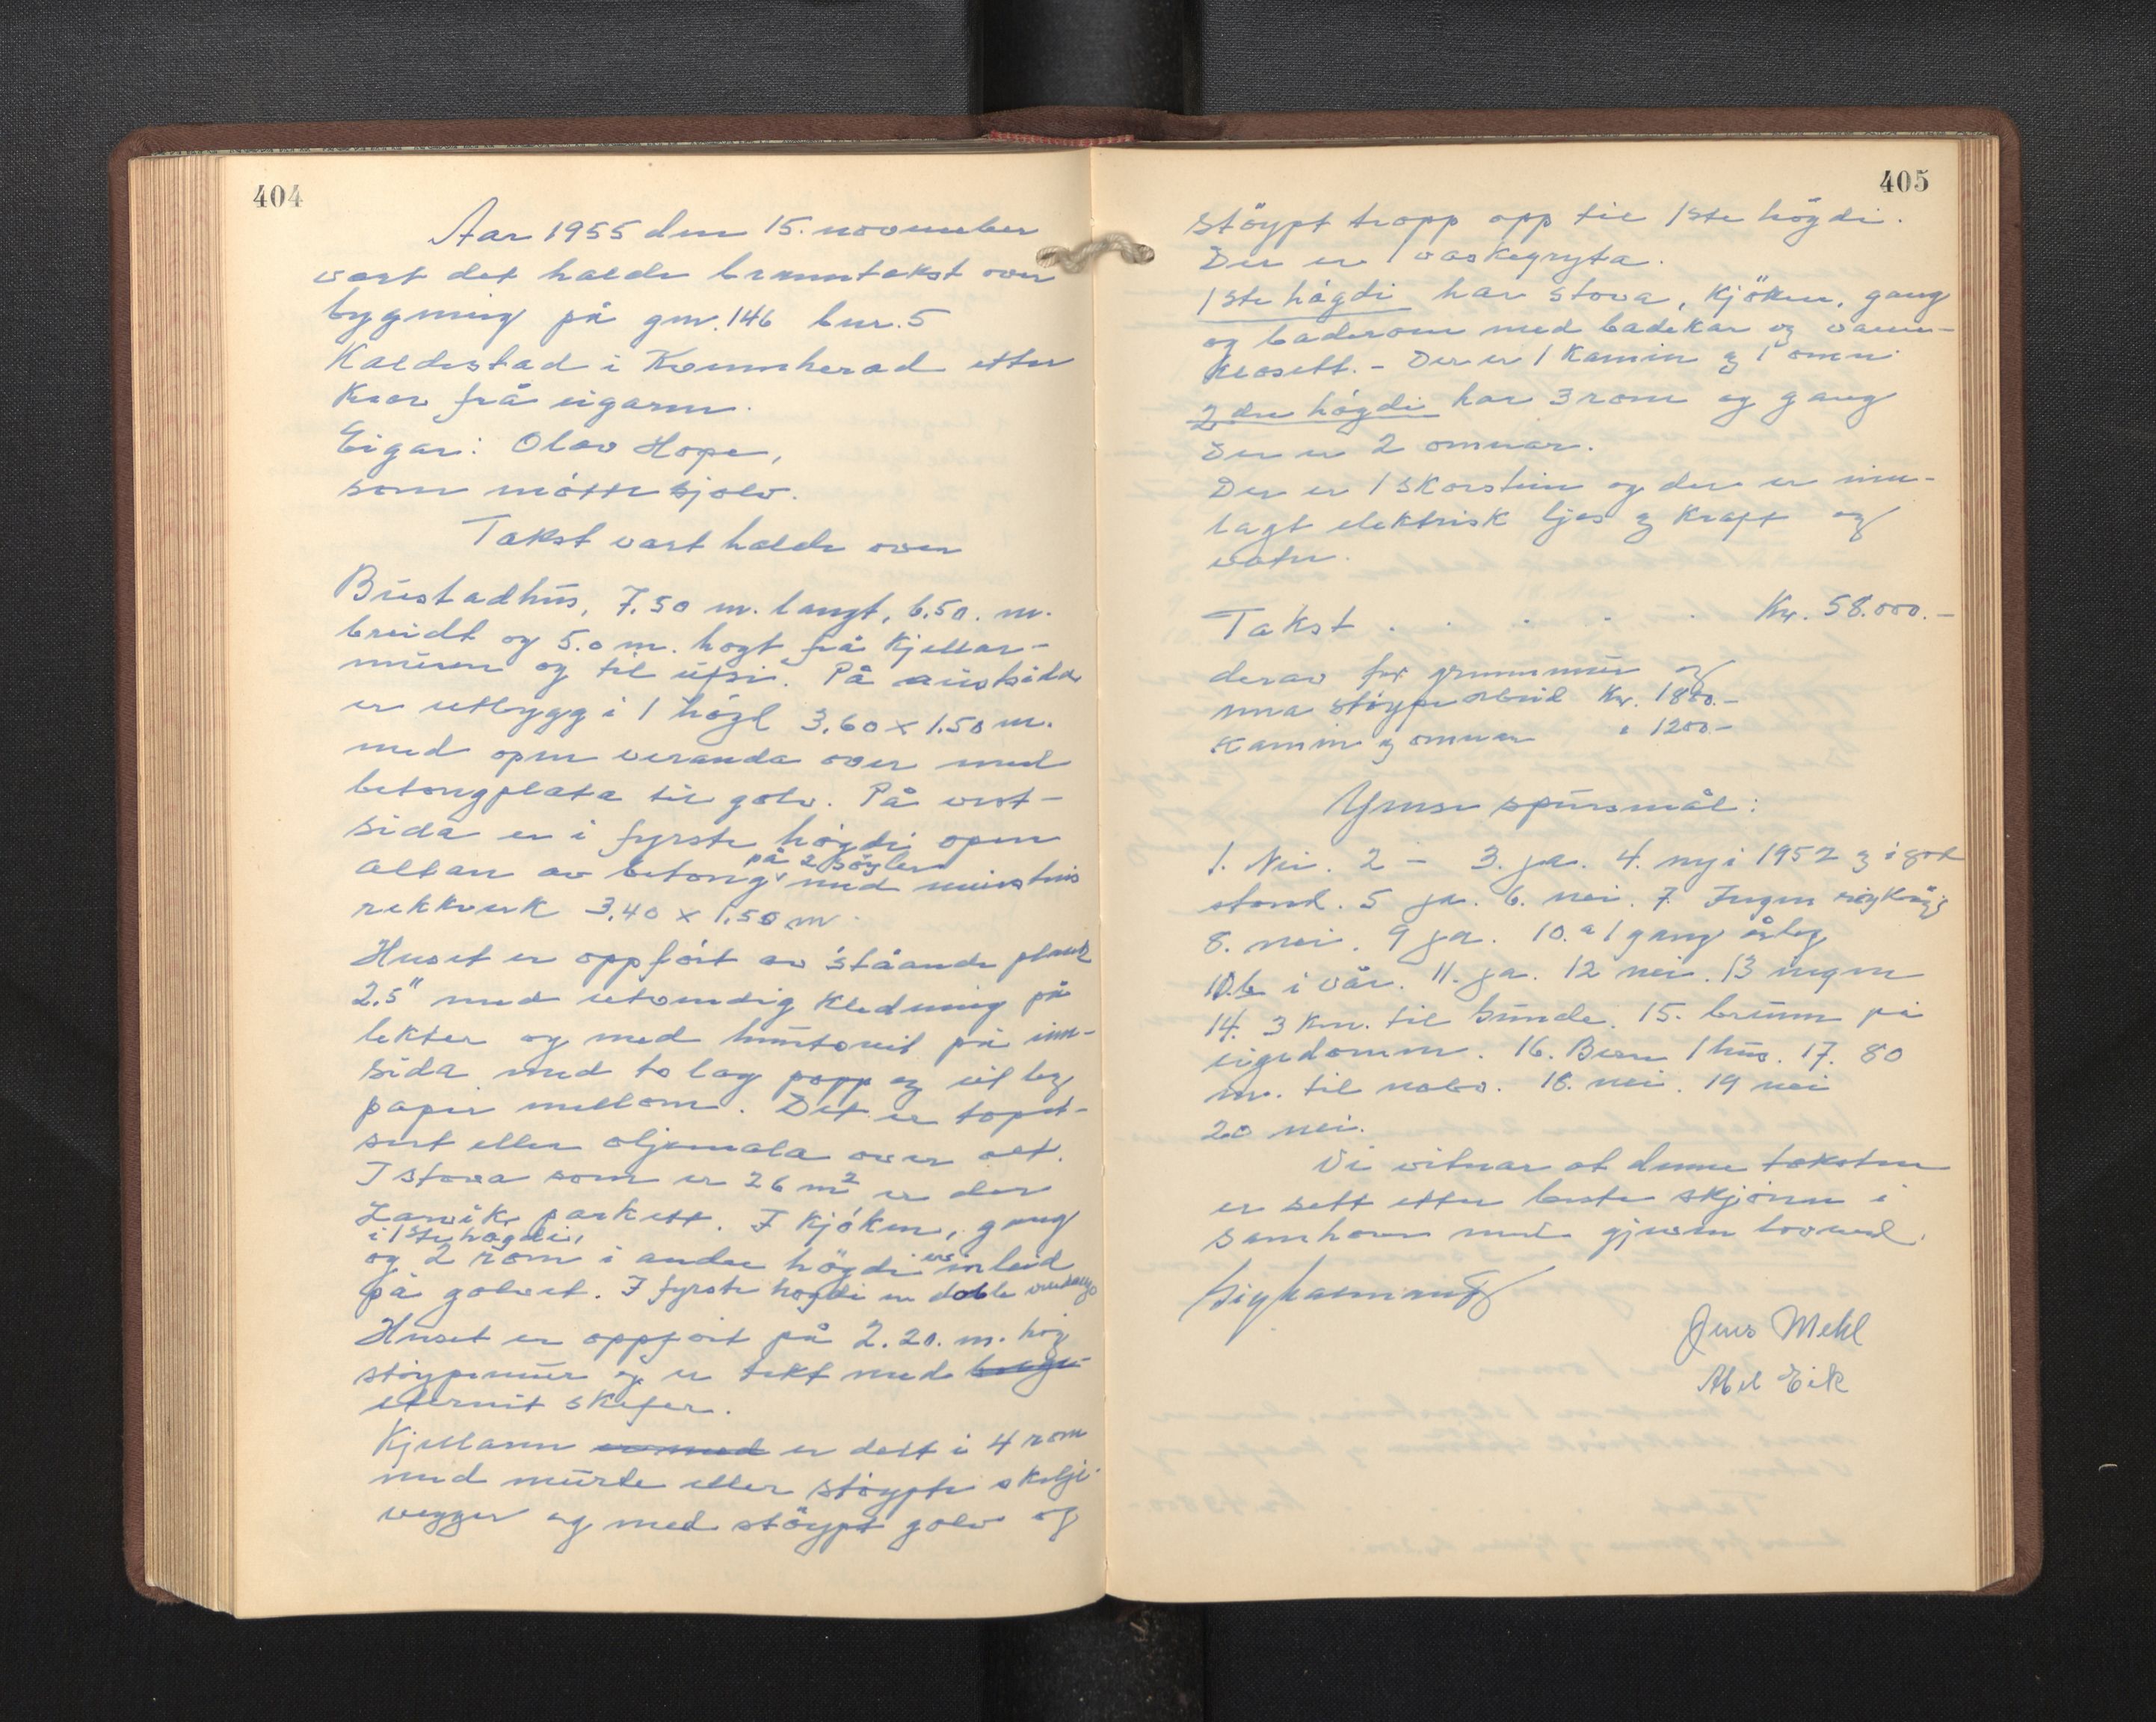 404
Aar 1955 den 15. november
vart det halde branntakst over
bygning på gnr. 146 bnr. 5
Kaldestad i Kvinnherad etter
krav frå eigaren.
Eigar: Olav Hope,
som møtte sjølv.
Takst vart halde over
Bustadhus, 7.50 m. langt, 6.50. m.
breidt og 5.0 m. høgt frå kjellar-
muren og til ufsi. På austsida
er utbygg i 1 høgd 3.60 x 1.50 m.
med open veranda over med
betongplata til golv. På vest-
sida er i fyrste høgdi open
altan av betong på 2 søyler med murstins
rekkverk 3.40 x 1.50 m.
Huset er oppført av ståande plank
2.5" med utvendig kledning på
lekter og med huntonit på inn-
sida med to lag papp og
papir mellom. Det er tapet-
sert eller oljemala over alt.
I stova som er 26 m² er der
Larvik parkett. I kjøken, gang
i 1ste høgdi,
og 2 rom i andre høgdi er
på golvet. I fyrste høgdi er doble
Huset er oppført på 2.20. m. høg
støypemur og er tekt med
eternit skifer.
Kjellaren er med er delt i 4 rom
med murte eller støypte skilje-
vegger og med støypt golv og
405
støypt tropp opp til 1ste høgdi.
Der er 1 vaskegryta.
1ste høgdi har stova, kjøken, gang
og baderom med badekar og vann-
klosett. - Der er 1 kamin og 1 omn.
2dre høgdi har 3 rom og gang
Der er 2 omnar.
Der er 1 skorstein og der er inn-
lagt elektrisk ljos og kraft og
vatn.
Takst . . . . . Kr. 58.000.-
derav for grunnmur og
anna støypearbeid Kr. 1800.-
Kamin og omnar " 1200.-
Ymse spursmål:
1. Nei. 2 - 3. ja. 4. ny i 1952 og i god
stand. 5 ja. 6. nei. 7. Ingen
8. nei. 9 ja. 10.a 1 gang årleg
10.b i vår. 11. ja. 12 nei. 13 ingen
14. 3 km. til Sunde. 15. brunn på
eigedomen. 16. Bere 1 hus. 17. 80
m. til nabo. 18. nei. 19 nei
20 nei.
Vi vitnar at denne taksten
er sett etter beste skjønn i
samhøve med gjevin lovnad.
Jens Mehl
Abel Eik